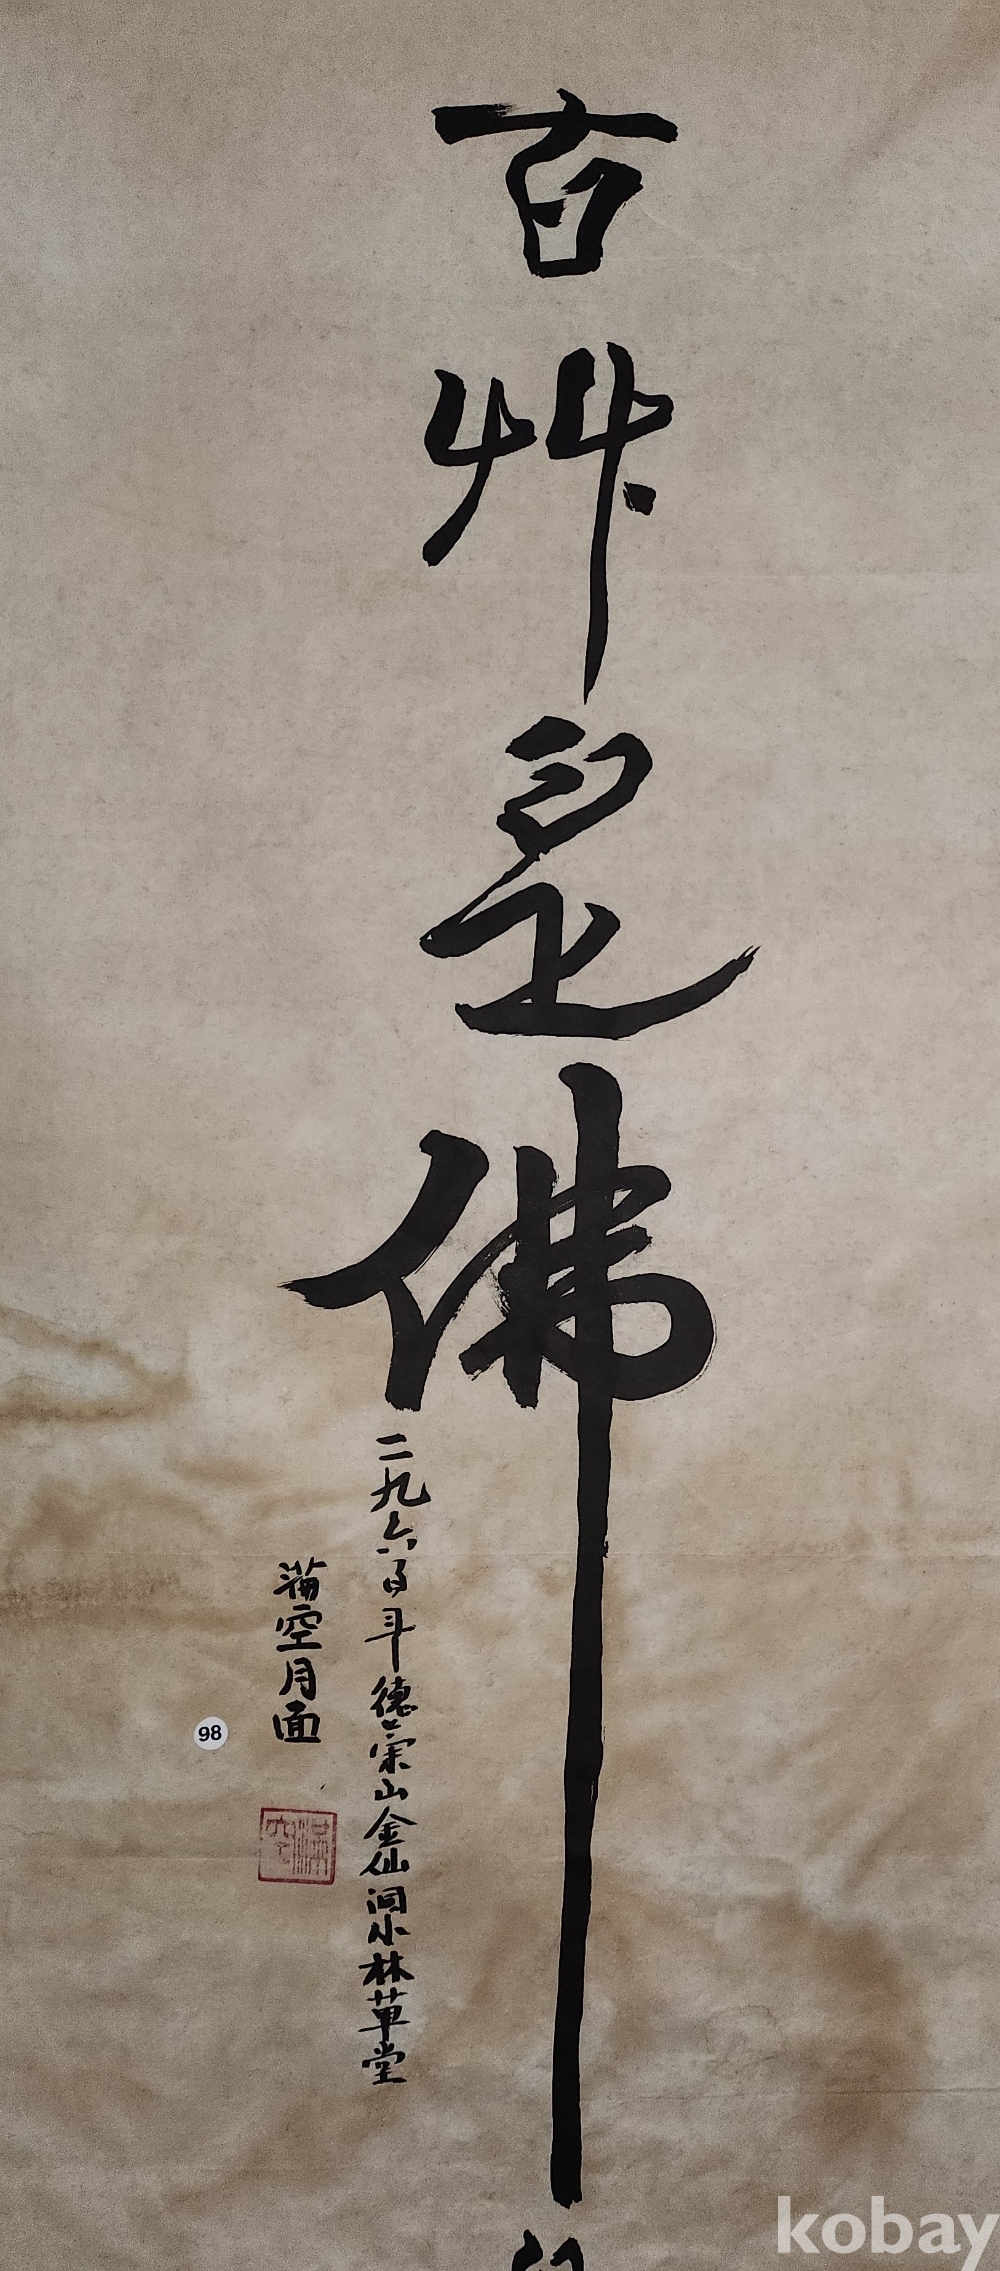 古
是
佛
二九六
德崇山金仙洞小林草堂
滿空月面
98
滿空
kobay